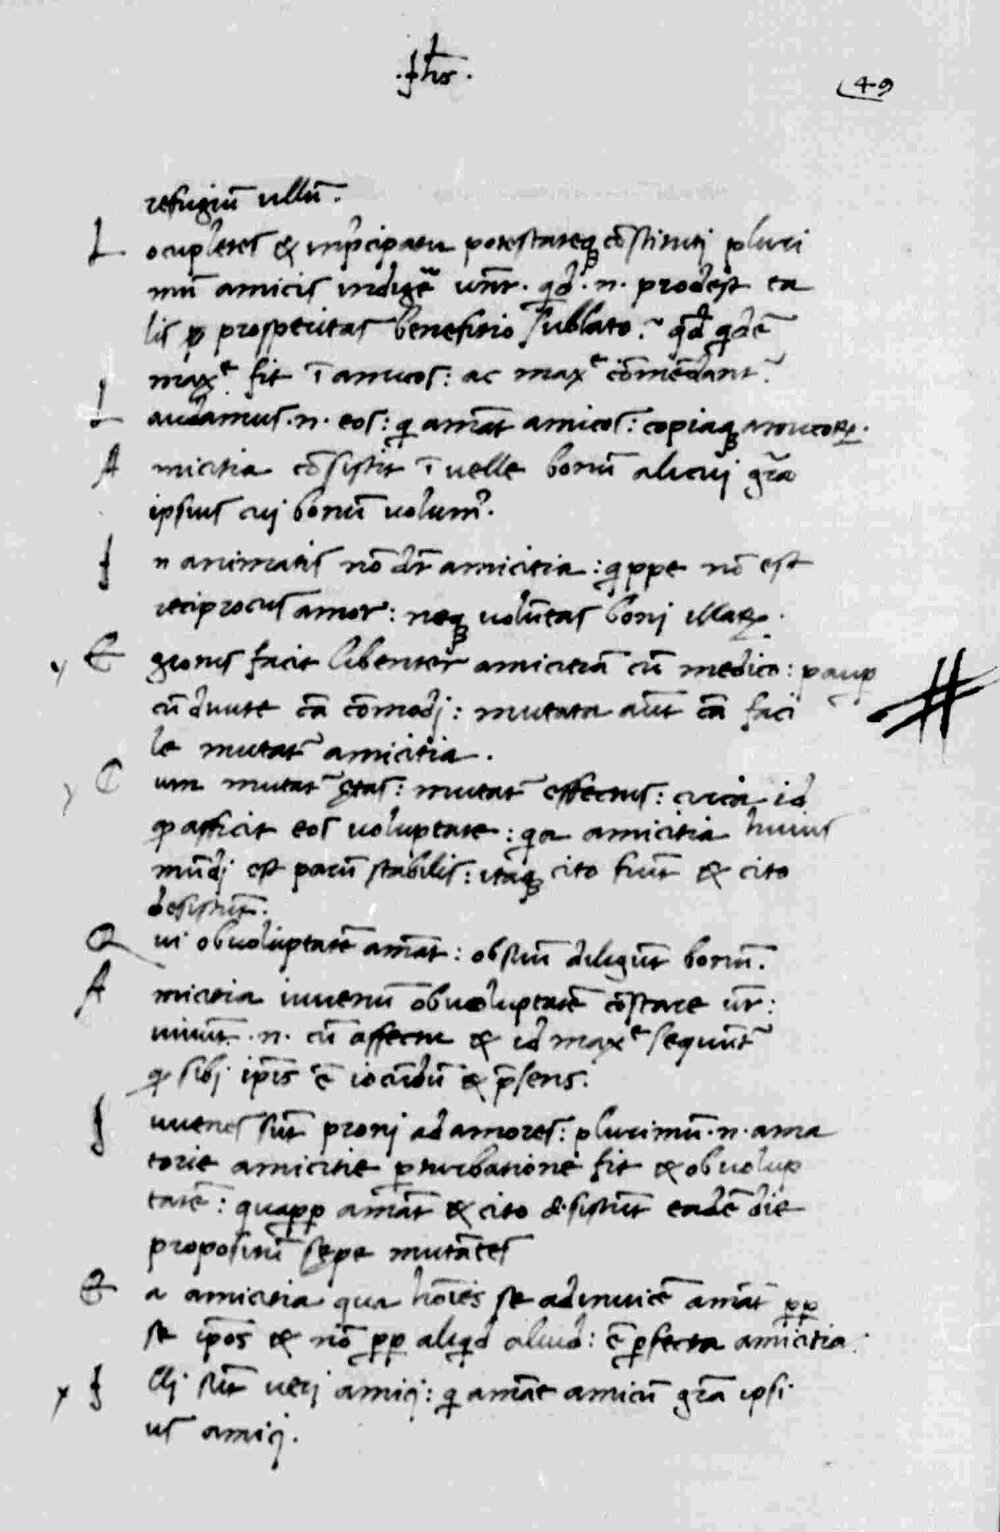 .yhs.
49
refugiū ullū.
Locupletes & inp̄cipatu potestateq; cōstituti pluri
mū amicis indigē̄ un̄r. qd̄ .n. prodest ta
lis ꝑ prosperitas benefitio sublato? qd̄ qdē
maxe fit ī amicos: ac maxe cōmēdant̄.
Laudamus .n. eos: q̄ amāt amicos: copiaq; amicoꝝ.
Amicitia cōsistit ī uelle bonū alicuj gr̄a
ipsius cuj bonū uolum᷒.
In animatis nō dr̄ amicitia: q̄ppe nō est
reciprocus amor: neq; volūtas bonj illaꝝ.
Egrotus facit libenter amicitiā cū medico: pauꝑ
cū diuite cā cōmodj: mutata aūt cā faci
le mutat̄ amicitia.
Cum mutat̄ ętas: mutat̄ effectus: circa id
q̄ afficit eos uoluptate: q̄a amicitia huius
mūdj est parū stabilis: itaq; cito fiūt & cito
desistūt.
Qui ob uoluptatē amāt: ob suū diligūt bonū.
Amicitia iuuenū ob uoluptatē cōstare ur̄:
uiuūt .n. cū affectu & id maxe sequūt̄
q̄ sibj ip̄is ē iocūdū & p̄sens.
Iuuenes sūt pronj ad amores: plurimū .n. ama
torie amicitie ꝑturbatione fit & ob uolup
tatē: quapp amāt & cito desistūt eadē die
propositū sępe mutātes
Ea amicitia qua hoīes se adinuicē amāt pp
se ip̄os & nō pp aliqd aliud: ē ꝑfecta amicitia.
Illj sūt uerj amicj: q̄ amāt amicū gr̄a ipsi
us amicj.